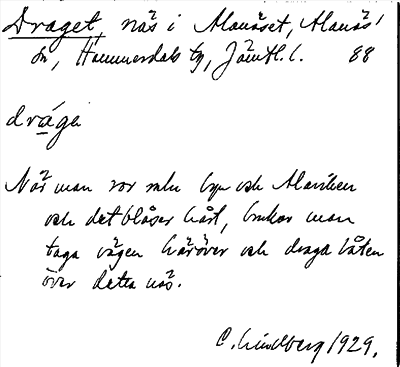 Draget, näs i Alanäset, Alanäs
sn, Hammerdals tg, Jämtl. l. 88
drági
När man ror mellan byn och Alaviken
och det blåser hårt, brukar man
taga vägen häröver och draga båten
över detta näs.
C. Lindberg 1929.